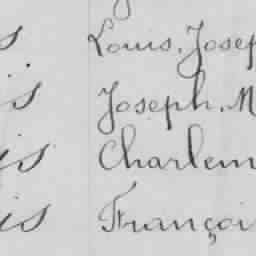 s Louis. Josep
is Joseph. M
is Charlem
is Françoi